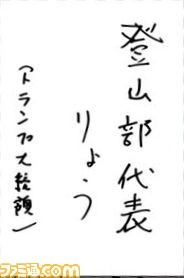 登山部代表
りょう
(トランプ大統領)
ファミ通.com